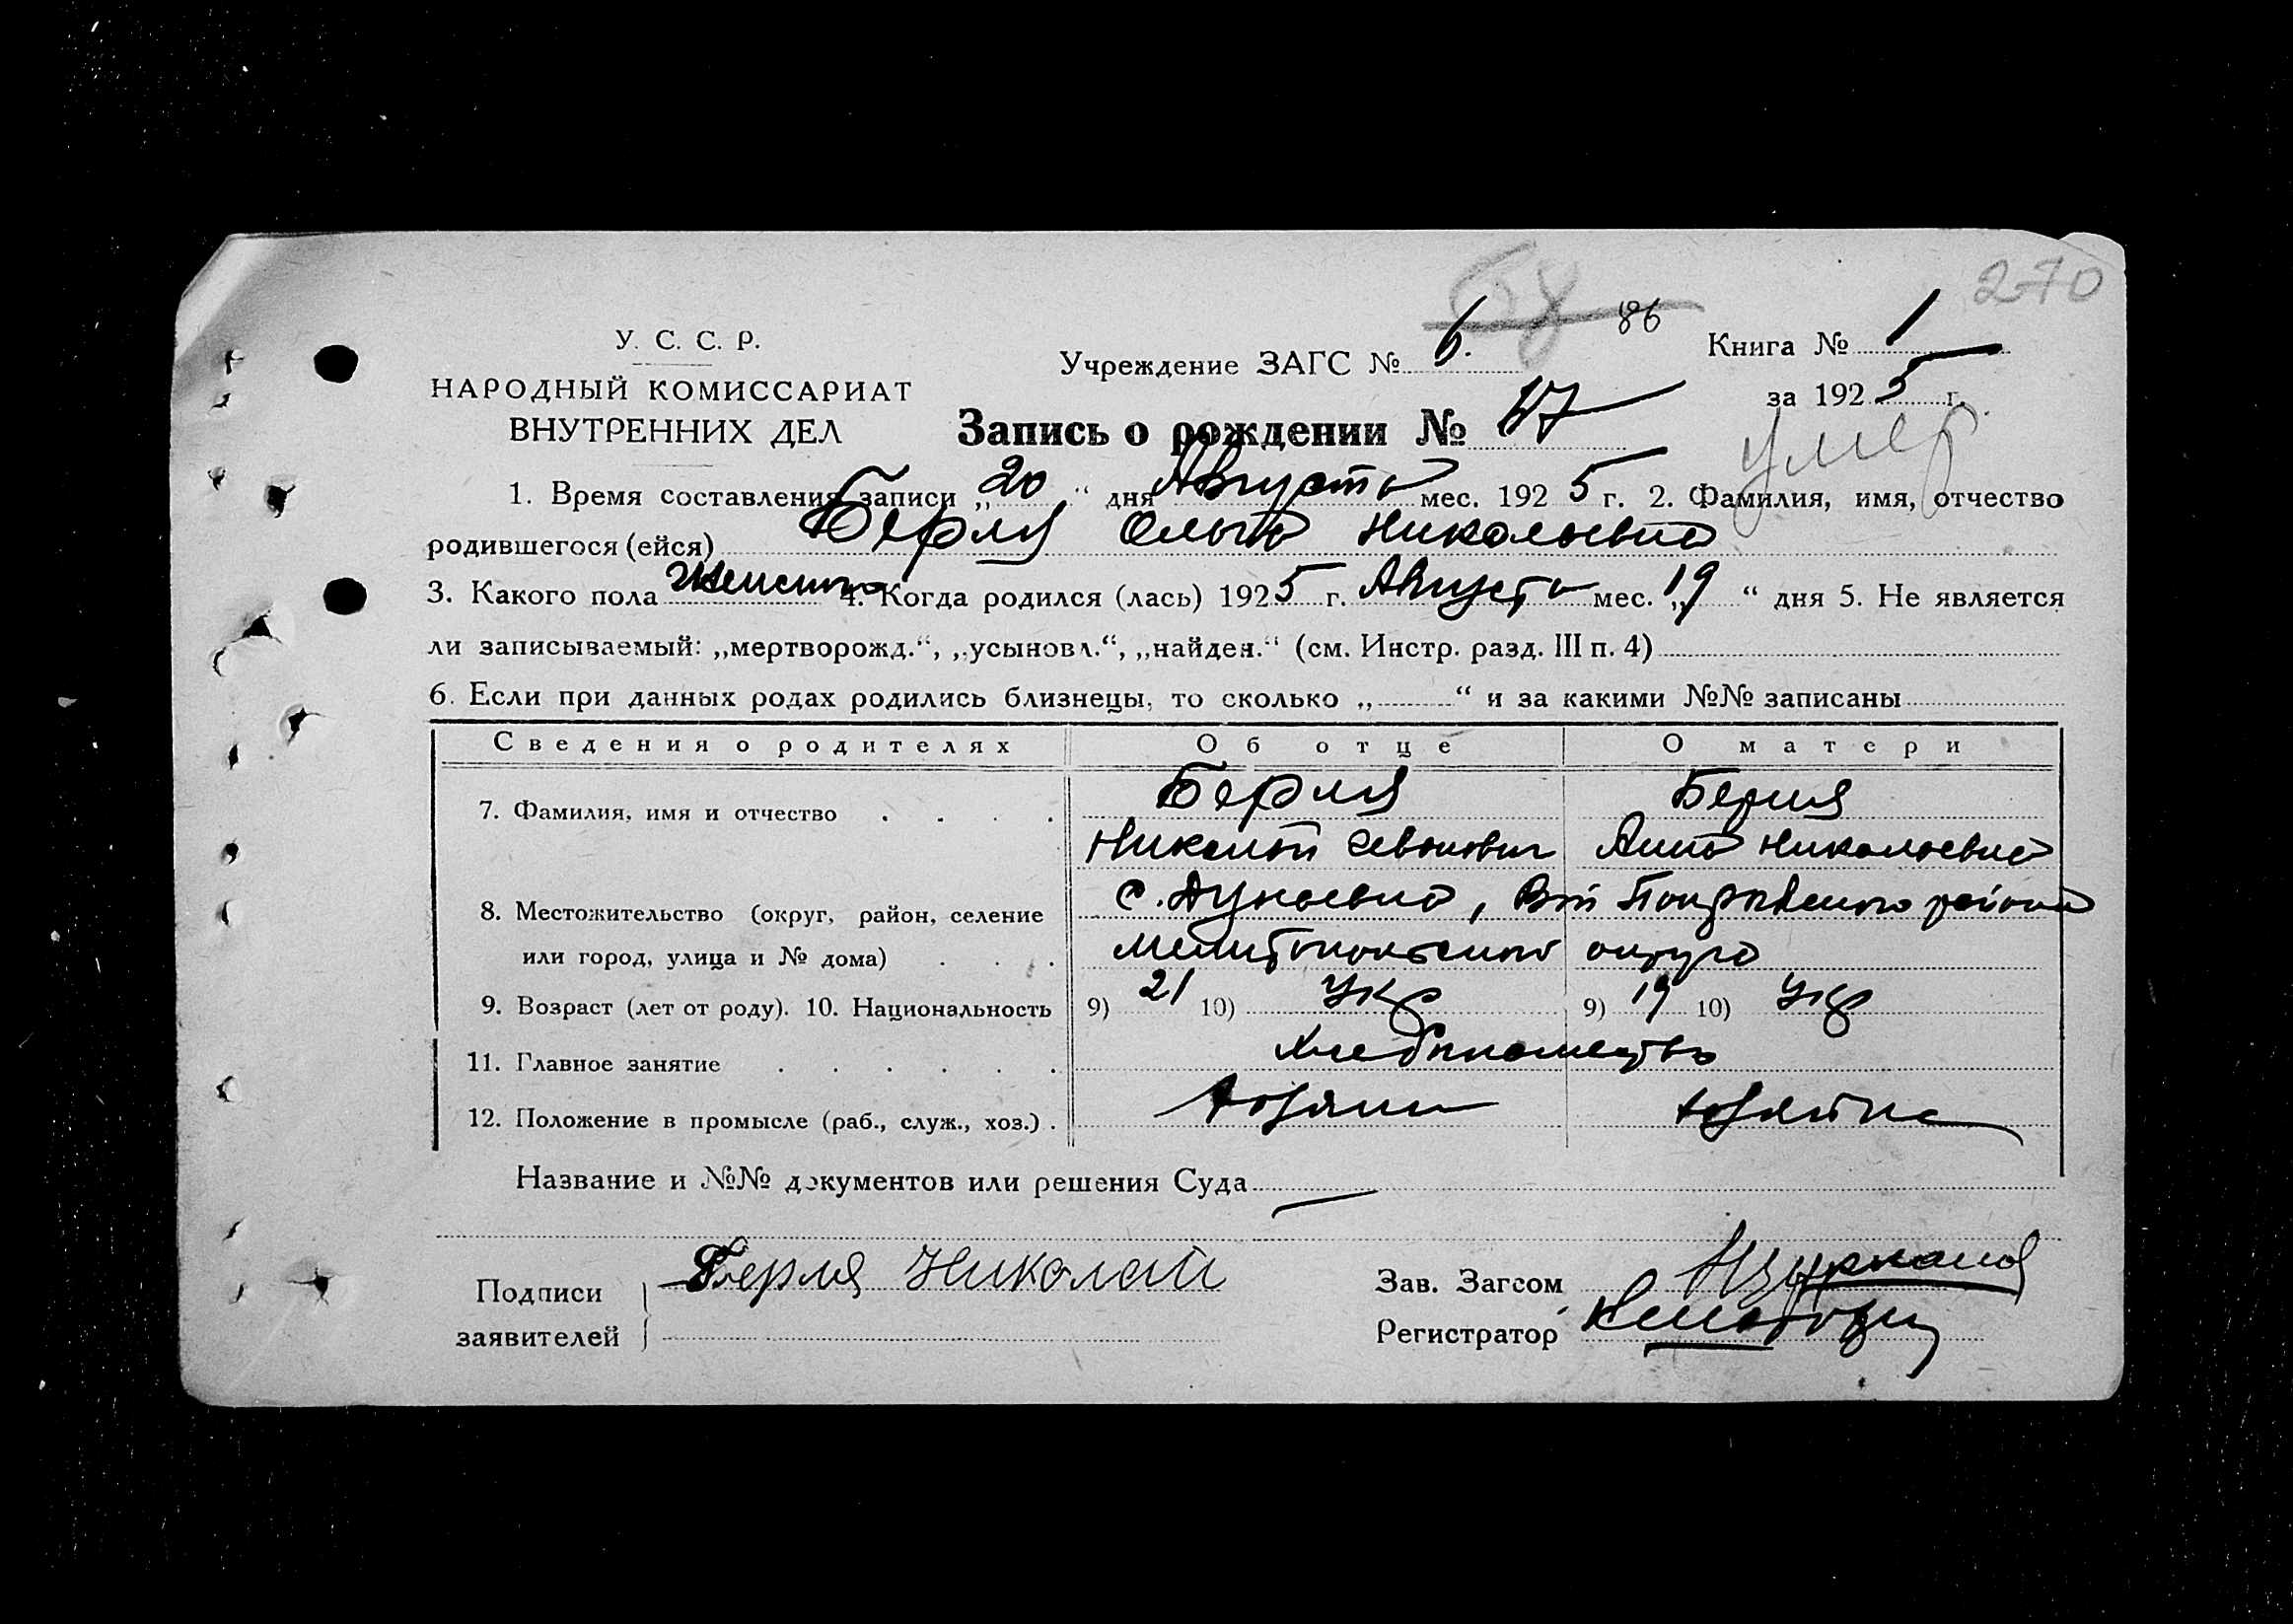 270
68
86
У. С. С. Р.
НАРОДНЫЙ КОМИССАРИАТ
ВНУТРЕННИХ ДЕЛ
Учреждение ЗАГС № 6.
Книга № 1
за 1925 г.
Запись о рождении № 47
умер
1. Время составления записи „20“ дня Августа мес. 1925 г. 2. Фамилия, имя, отчество
родившегося (ейся) Берля Ольга Николаевна
3. Какого пола Женского 4. Когда родился (лась) 1925 г. Августа мес. „19“ дня 5. Не является
ли записываемый: „мертворожд.“, „усыновл.“, „найден.“ (см. Инстр. разд. III п. 4)
6. Если при данных родах родились близнецы, то сколько „ “ и за какими №№ записаны
Сведения о родителях Об отце О матери
7. Фамилия, имя и отчество Берля Берля
Николай Анна Николаевна
8. Местожительство (округ, район, селение с. района
или город, улица и № дома) Мелитопольского округа
9. Возраст (лет от роду). 10. Национальность 9) 21 10) Укр 9) 19 10) Укр
11. Главное занятие Хлебопашество
12. Положение в промысле (раб., служ., хоз.) Хозяин хозяйка
Название и №№ документов или решения Суда —
Подписи Берля Николай
заявителей
Зав. Загсом
Регистратор